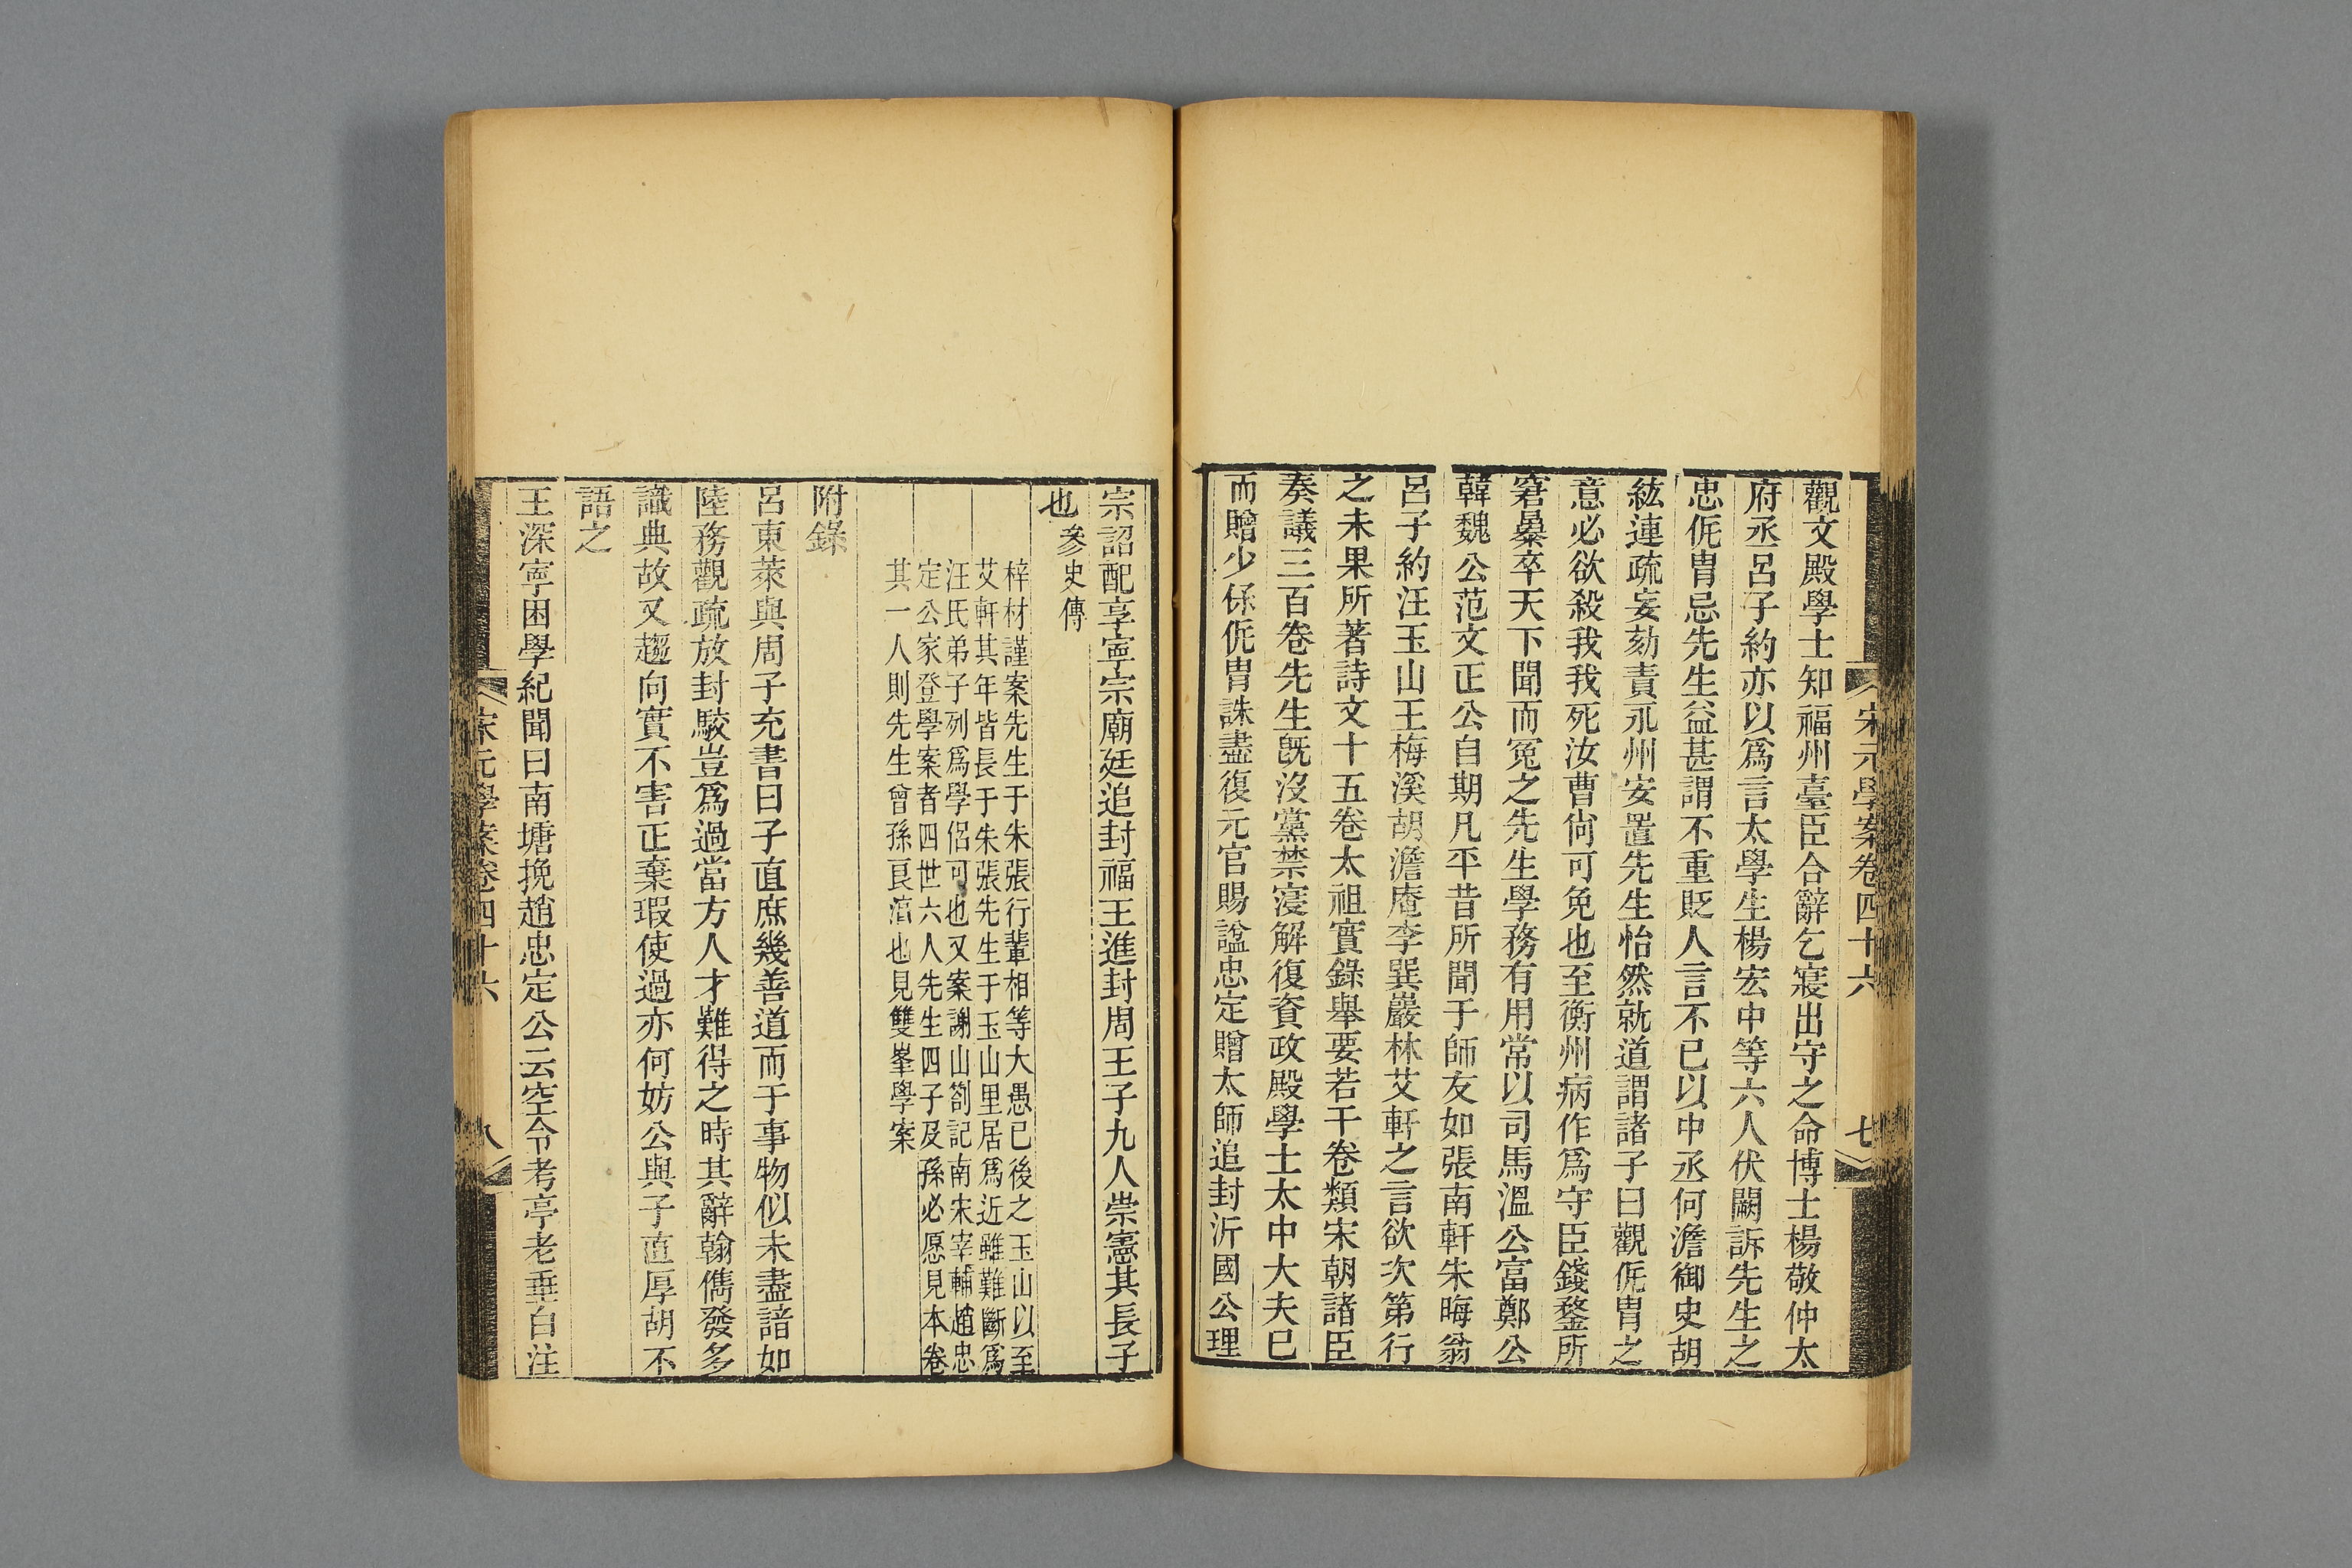 宋元學案卷四十六
七
觀文殿學士知福州臺臣合辭乞寢出守之命博士楊敬仲太
府丞呂子約亦以爲言太學生楊宏中等六人伏闕訴先生之
忠侂胄忌先生益甚謂不重貶人言不已以中丞何澹御史胡
紘連疏妄劾責永州安置先生怡然就道謂諸子曰觀侂胄之
意必欲殺我我死汝曹尙可免也至衡州病作爲守臣錢鍪所
窘暴卒天下聞而冤之先生學務有用常以司馬溫公富鄭公
韓魏公范文正公自期凡平昔所聞于師友如張南軒朱晦翁
呂子約汪玉山王梅溪胡澹庵李巽巖林艾軒之言欲次第行
之未果所著詩文十五卷太祖實錄舉要若干卷類宋朝諸臣
奏議三百卷先生旣沒黨禁寖解復資政殿學士太中大夫已
而贈少保侂胄誅盡復元官賜諡忠定贈太師追封沂國公理
宗詔配享寧宗廟廷追封福王進封周王子九人崇憲其長子
也參史傳
梓材謹案先生于朱張行輩相等大愚已後之玉山以至
艾軒其年皆長于朱張先生于玉山里居爲近雖難斷爲
汪氏弟子列爲學侶可也又案謝山劄記南宋宰輔趙忠
定公家登學案者四世六人先生四子及孫必愿見本卷
其一人則先生曾孫良淯也見雙峯學案
附錄
呂東萊與周子充書曰子直庶幾善道而于事物似未盡諳如
陸務觀疏放封駮豈爲過當方人才難得之時其辭翰儁發多
識典故又趨向實不害正棄瑕使過亦何妨公與子直厚胡不
語之
王深寧困學紀聞曰南塘挽趙忠定公云空令考亭老垂白注
宋元學案卷四十六
八